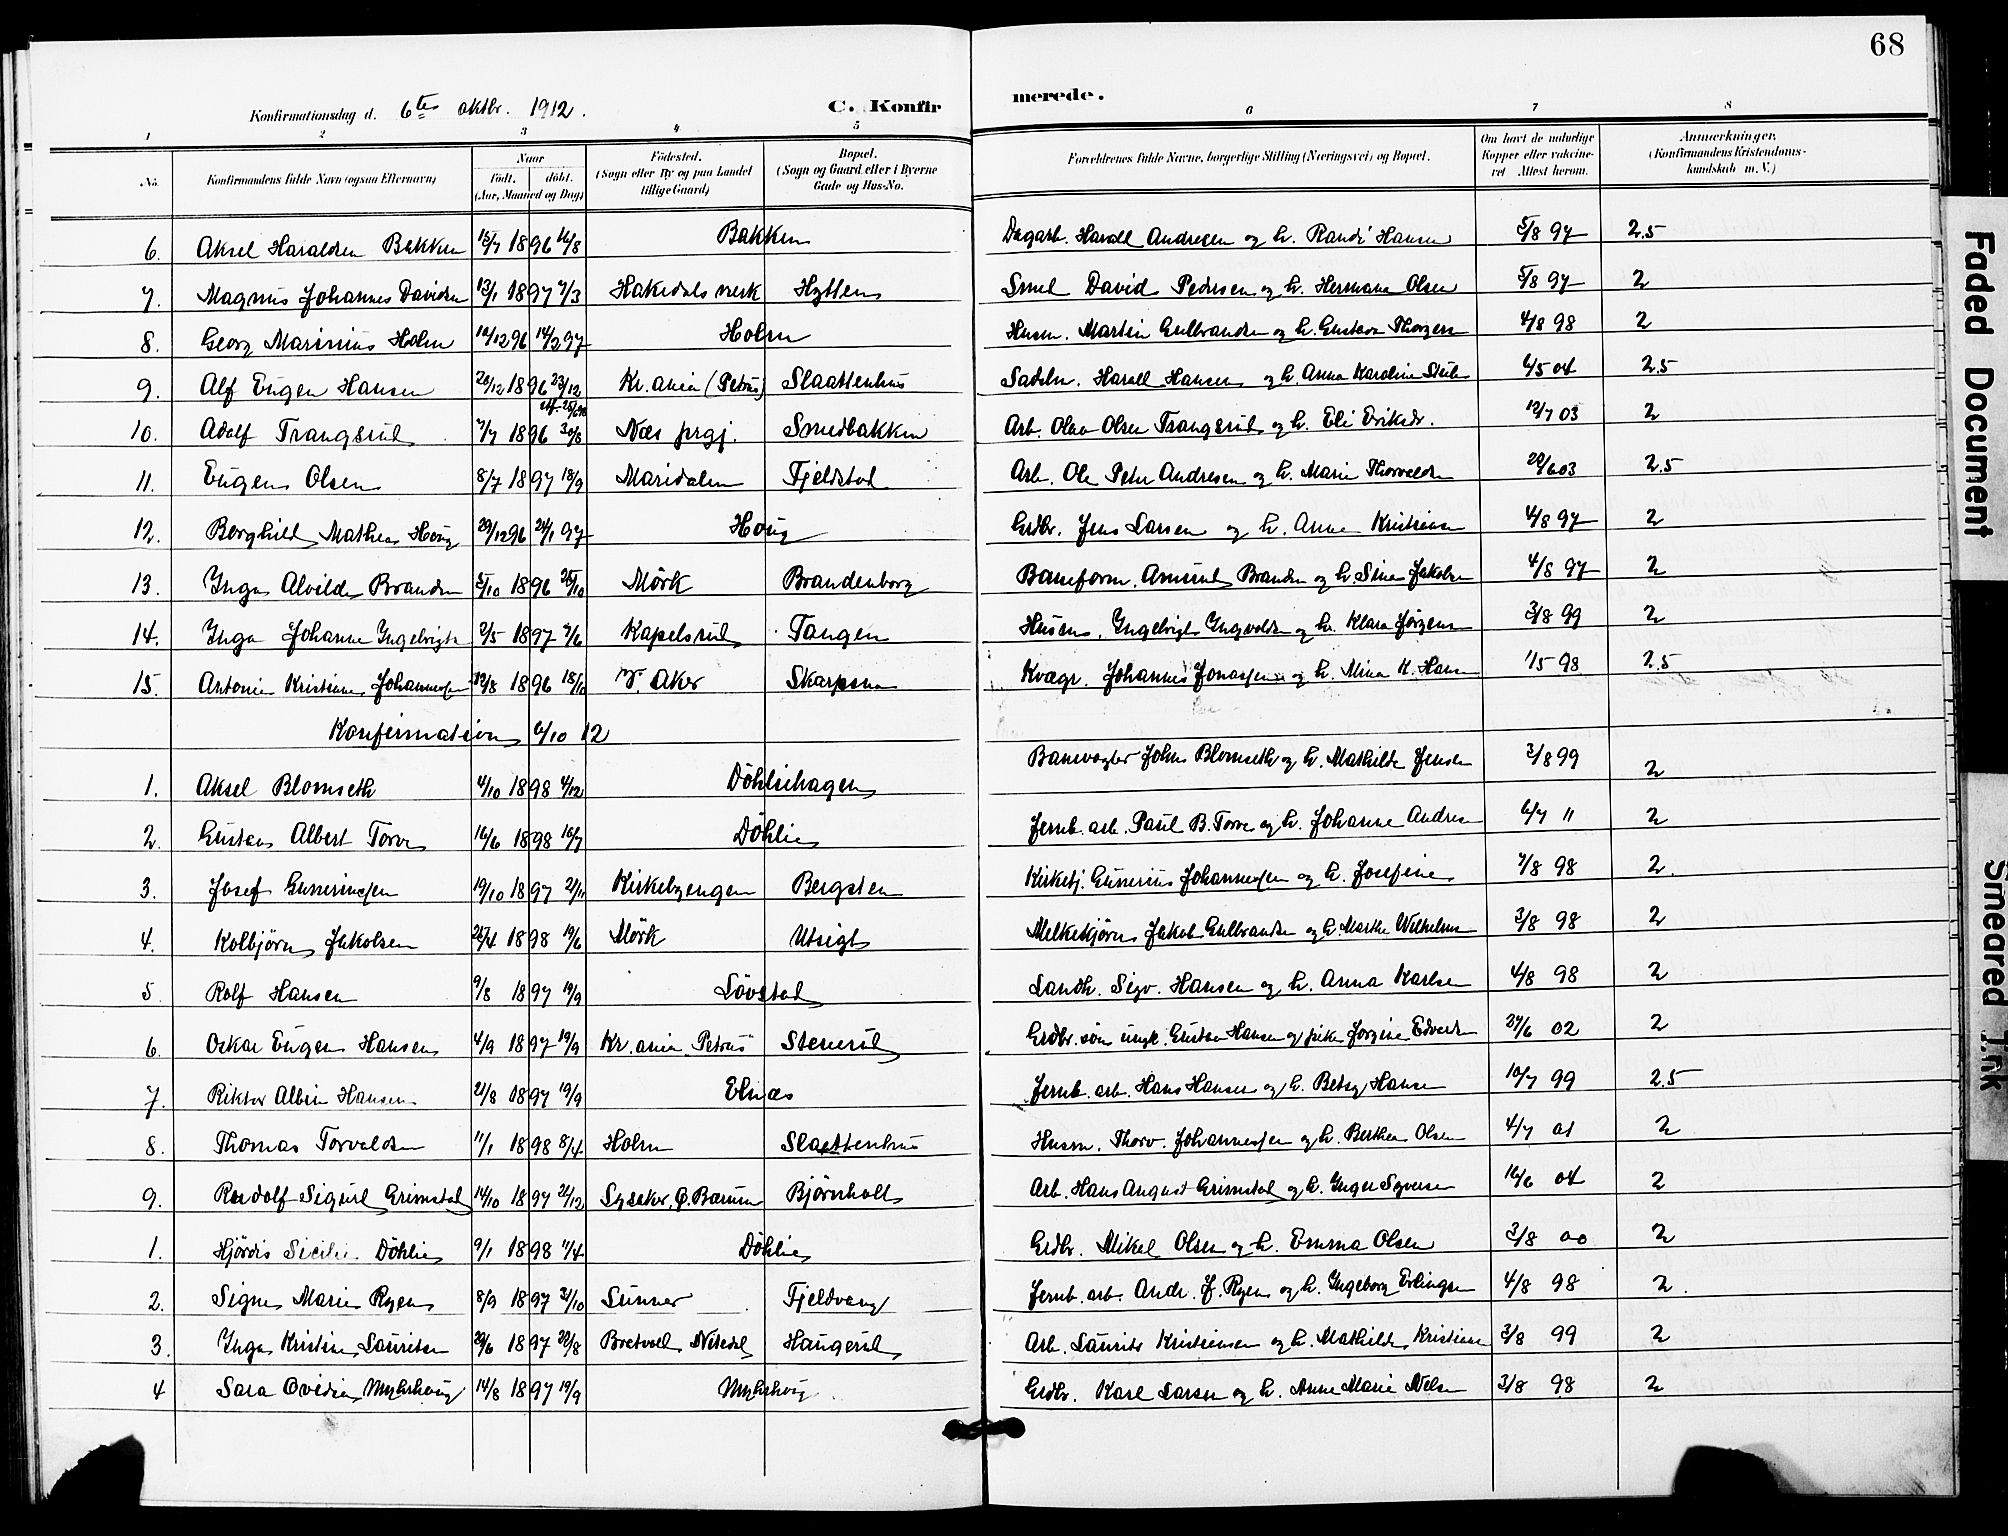 68
Konfirmationsdag d. 6te oktbr. 1912. C. Konfir merede.
1 2 3 4 5 6 7 8
No. Konfirmandens fulde Navn (ogsaa Efternavn) Naar Født. døbt. (Aar, Maaned og Dag) Fødested. (Sogn eller By og paa Landet tillige Gaard) Bopæl. (Sogn og Gaard eller i Byerne Gade og Hus-No. Forældrenes fulde Navne, borgerlige Stilling (Næringsvei) og Bopæl. Om havt de naturlige Kopper eller vakcineret Attest herom. Anmærkninger. (Konfirmandens Kristendomskundskab m. V.)
6. Aksel Haraldsen Bakken 15/7 1896 16/8 Bakken Dagarb. Harald Andresen og h. Randi Hansen 5/8 97 2.5
7. Magnus Johannes Davidsen 13/1 1897 7/3 Hakedals verk Hytten Smed David Pedersen og h. Hermana Olsen 5/8 97 2
8. Georg Marinius Holm 10/12 96 14/2 97 Holm Husm. Martin Gulbrandsen og h. Gustava Thorgers 4/8 98 2
9. Alf Eugen Hansen 20/12 1896 23/12 Kr.ania (Petrus) Slaattenhus Sadelm. Harald Hansen og h. Anna Karoline 6/5 04 2.5
10. Adolf Trangsrud 7/7 1896 30/8 Næs prgj. Smedbakken Arb. Olav Olsen Trangsrud og h. Eli Eriksdr. 12/7 03 2
11. Eugen Olsen 8/7 1897 18/9 Maridalen Fjeldstad Arb. Ole Peter Andresen og h. Marie Thorvaldsn 20/6 03 2.5
12. Borghild Mathea Houg 29/12 96 24/1 97 Houg Grdbr. Jens Larsen og h. Anna Kristiansen 4/8 97 2
13. Inga Alvilde Brandsen 5/10 1896 25/10 Mörk Brandenborg Baneform. Amund Brandsen og h. Stina Jakobsen 4/8 97 2
14. Inga Johanne Ingebrigts 2/5 1897 7/6 Kapelsrud Tangen Husm. Ingebrigt Ingvaldsn og h. Klara Jørgens 3/8 99 2
15. Antonie Kristiane Johannesen 12/8 1896 18/10 V. Aker Skarpsno Kvægr. Johannes Jonassen og h. Mina K. Hans 1/5 98 2.5
Konfirmation 6/10 12
1. Aksel Blomseth 4/10 1898 4/12 Döhlichagen Banevogter Johns Blomseth og h. Mathilde Jensen 3/8 99 2
2. Gustav Albert Torve 16/6 1898 16/7 Döhlie Jernb. arb. Paul B. Torve og h. Johanne Andres 6/7 11 2
3. Josef Gunneriusen 19/10 1897 21/11 Kirkebyengen Bergsten Kirketj. Gunerius Johannesen og h. Josefine 7/8 98 2.
4. Kolbjörn Jakobsen 25/4 1898 19/6 Mörk Utsigt Melkekjörer Jakob Gulbrandsen og h. Marthe Wilhelms 3/8 98 2
5 Rolf Hansen 9/8 1897 19/9 Lövstad Landh. Sigv. Hansen og h. Anna Karlsen 4/8 98 2
6. Oskar Eugen Hansen 4/9 1897 19/9 Kr.ania Petrus Stenerud Grdbr. søn ungk. Gustav Hansen og pike Jørgine Edvards 27/6 02 2
7. Viktor Albin Hansen 21/8 1897 19/9 Elnæs Jernb. arb. Hans Hansen og h. Betsy Hansen 10/7 99 2.5
8. Thomas Torvaldsen 11/1 1898 8/4 Holm Slaattenhus Husm. Thorv. Johannesen og h. Berthea Olsen 4/7 01 2
9. Rudolf Sigurd Grimstad 14/10 1897 26/12 Lysaker, Ø. Bærum Björnholt Arb. Hans August Grimstad og h. Inger Syversen 16/6 04 2
1. Hjördis Sicilie Döhlie 9/1 1898 11/4 Döhlie Grdbr. Mikal Olsen og h. Emma Olsen 3/8 00 2
2. Signe Marie Ryen 8/9 1897 31/10 Sünner Fjeldvang Jernb. arb. Andr. J. Ryen og h. Ingeborg Erlingsen 4/8 98 2.
3. Inga Kristine Lauritsen 29/6 1897 22/8 Bretvæl Nitedal Haugerud Arb. Laurits Kristiansen og h. Mathilde Kristians 3/8 99 2
4 Sara Ovidia Myhrhoug 14/8 1897 19/9 Myhrhoug Grdbr. Karl Larsen og h. Anna Marie Nilsen 3/8 98 2
Faded Document
Smeared Ink